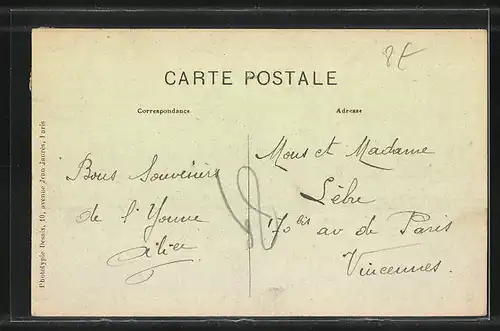 CARTE POSTALE
Correspondance
Adresse
Bons Souvenirs
de l'Yonne
Mons et Madame
Lèbre
170 bis av de Paris
Vincennes.
Phototypie Desaix, 10, avenue Jean Jaurès, Paris